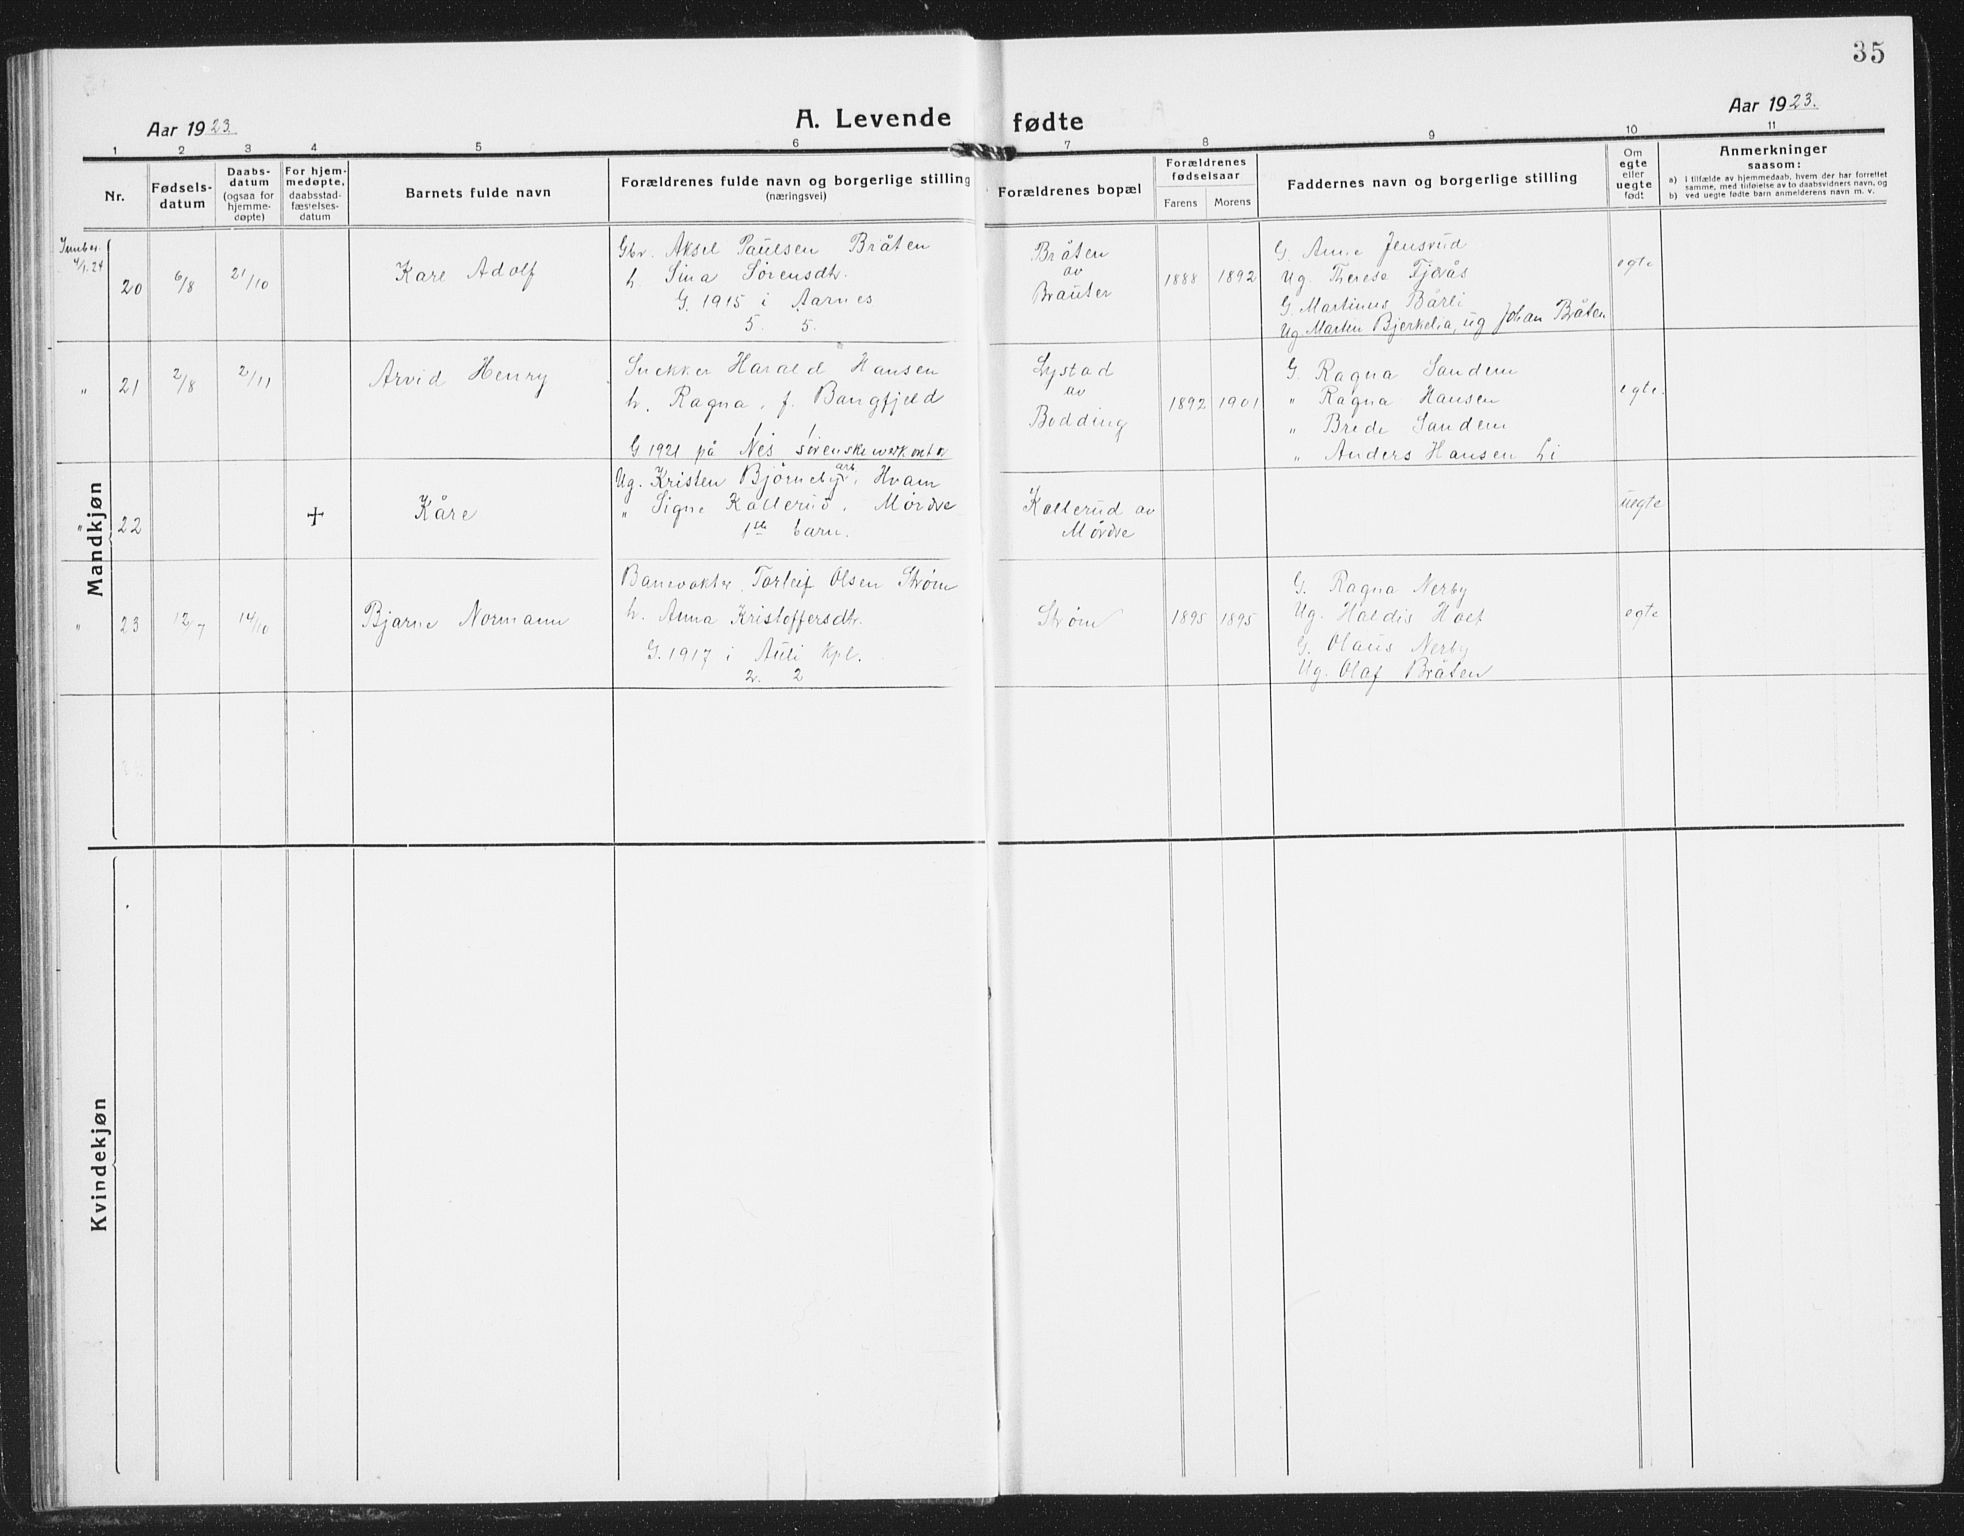 35
Aar 1923.
A. Levende fødte
Aar 1923.
1 2 3 4 5 6 7 8 9 10 11
Nr.
Fødsels-
datum
Daabs-
datum
(ogsaa for
hjemme-
døpte)
For hjem-
medøpte,
daabsstad-
fæstelses-
datum
Barnets fulde navn
Forældrenes fulde navn og borgerlige stilling
(næringsvei)
Forældrenes bopæl
Forældrenes
fødselsaar
Farens Morens
Faddernes navn og borgerlige stilling
Om
egte
eller
uegte
født
Anmerkninger
saasom:
a) I tilfælde av hjemmedaab, hvem der har forrettet
samme, med tilføielse av to daabsvidners navn, og
b) ved uegte fødte barn anmelderens navn m. v.
Mandkjøn
Innber.
4/1.24
20
6/8
21/10
Kåre Adolf
Gbr. Aksel Paulsen Bråten
h. Sina Sørensdtr.
G. 1915 i Aarnes
5. 5.
Bråten
av
Brauter
1888 1892
G. Anne Jensrud
Ug. Therese Fjøsås
G. Martinus Bårli
Ug. Martin Bjerkelia, ug Johan Bråten
egte
" 21
2/8
2/11
Arvid Henry
Snekker Harald Hansen
h. Ragna, f. Bangfjeld
1 1
G 1921 på Nes sørenskrivkontor
Lystad
av
Bodding
1892 1901
G. Ragna Sandem
" Ragna Hansen
" Brede Sandem
" Anders Hansen Li
egte.
" 22
+
Kåre
Ug. Kristen Bjørneby, arb. Hvam
" Signe Kallerud, Mørdre
1ste barn.
Kallerud av
Mørdre
uegte
" 23
12/7
14/10
Bjarne Normann
Banevokter Torleif Olsen Strøm
h. Anna Kristoffersdtr.
G. 1917 i Auli kpl.
2. 2
Strøm
1895 1895
G. Ragna Nerby
Ug. Haldis Holt
G. Olaus Nerby
Ug. Olaf Bråten
egte
Kvindekjøn